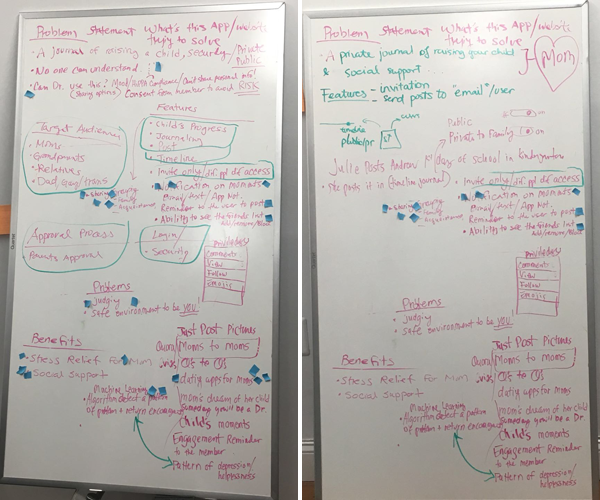 Problem Statement What's this APP/website
trying to solve
• A Journal of raising a child, Security/Private
Public
• No one can understand
• Can Dr. use this? Mood/
Consent from member to avoid RISK
Features
Target Audience
• Moms
• Grandparents
• Relatives
• Dad,
• Child's Progress
• Journaling
• Post
• Timeline
• Invite only/dif. ppl dif access
• Notification on moments
Email/Text/App Not.
• Reminder to the user to post
• Ability to see the friends list
Add/remove/Block
• Storing
Family
Approval Process
• Parents Approval
Login/
• Security
Privileges
Comments
View
Follow
Emojis
Problems
• Judging
• Safe environment to be you
Benefits
• Stress Relief for Mum
• Social Support
Just Post Pictures
Quora/Moms to moms
dating apps for moms
mom's dream of her child
Someday you'll be a Dr.
Child's moments
Engagement Reminder
to the member
Pattern of depression/
helplessness
Machine Learning
Algorithm detect a pattern
of pattern + return encourage
Problem Statement What's this APP/website
trying to solve
• A private journal of raising your child
& social support...
Mom
Features - invitation
- send posts to "email"/user
Public
Private to Family on
Julie Posts Andrew 1st days of school in kindergarten
She posts it in
• Invite only/dif. ppl dif access
• Notification on moments
Email/Text/App Not.
• Reminder to the user to post
• Ability to see the friends list
Add/remove/Block
• Storing
Family
Privileges
Comments
View
Follow
Emojis
Problems
• Judging
• Safe environment to be you
Benefits
• Stress Relief for Mum
• Social Support
Just Post Pictures
Quora/Moms to moms
dating apps for moms
mom's dream of her child
Someday you'll be a Dr.
Child's moments
Engagement Reminder
to the member
Pattern of depression/
helplessness
Machine Learning
Algorithm detect a pattern
of pattern + return encourage